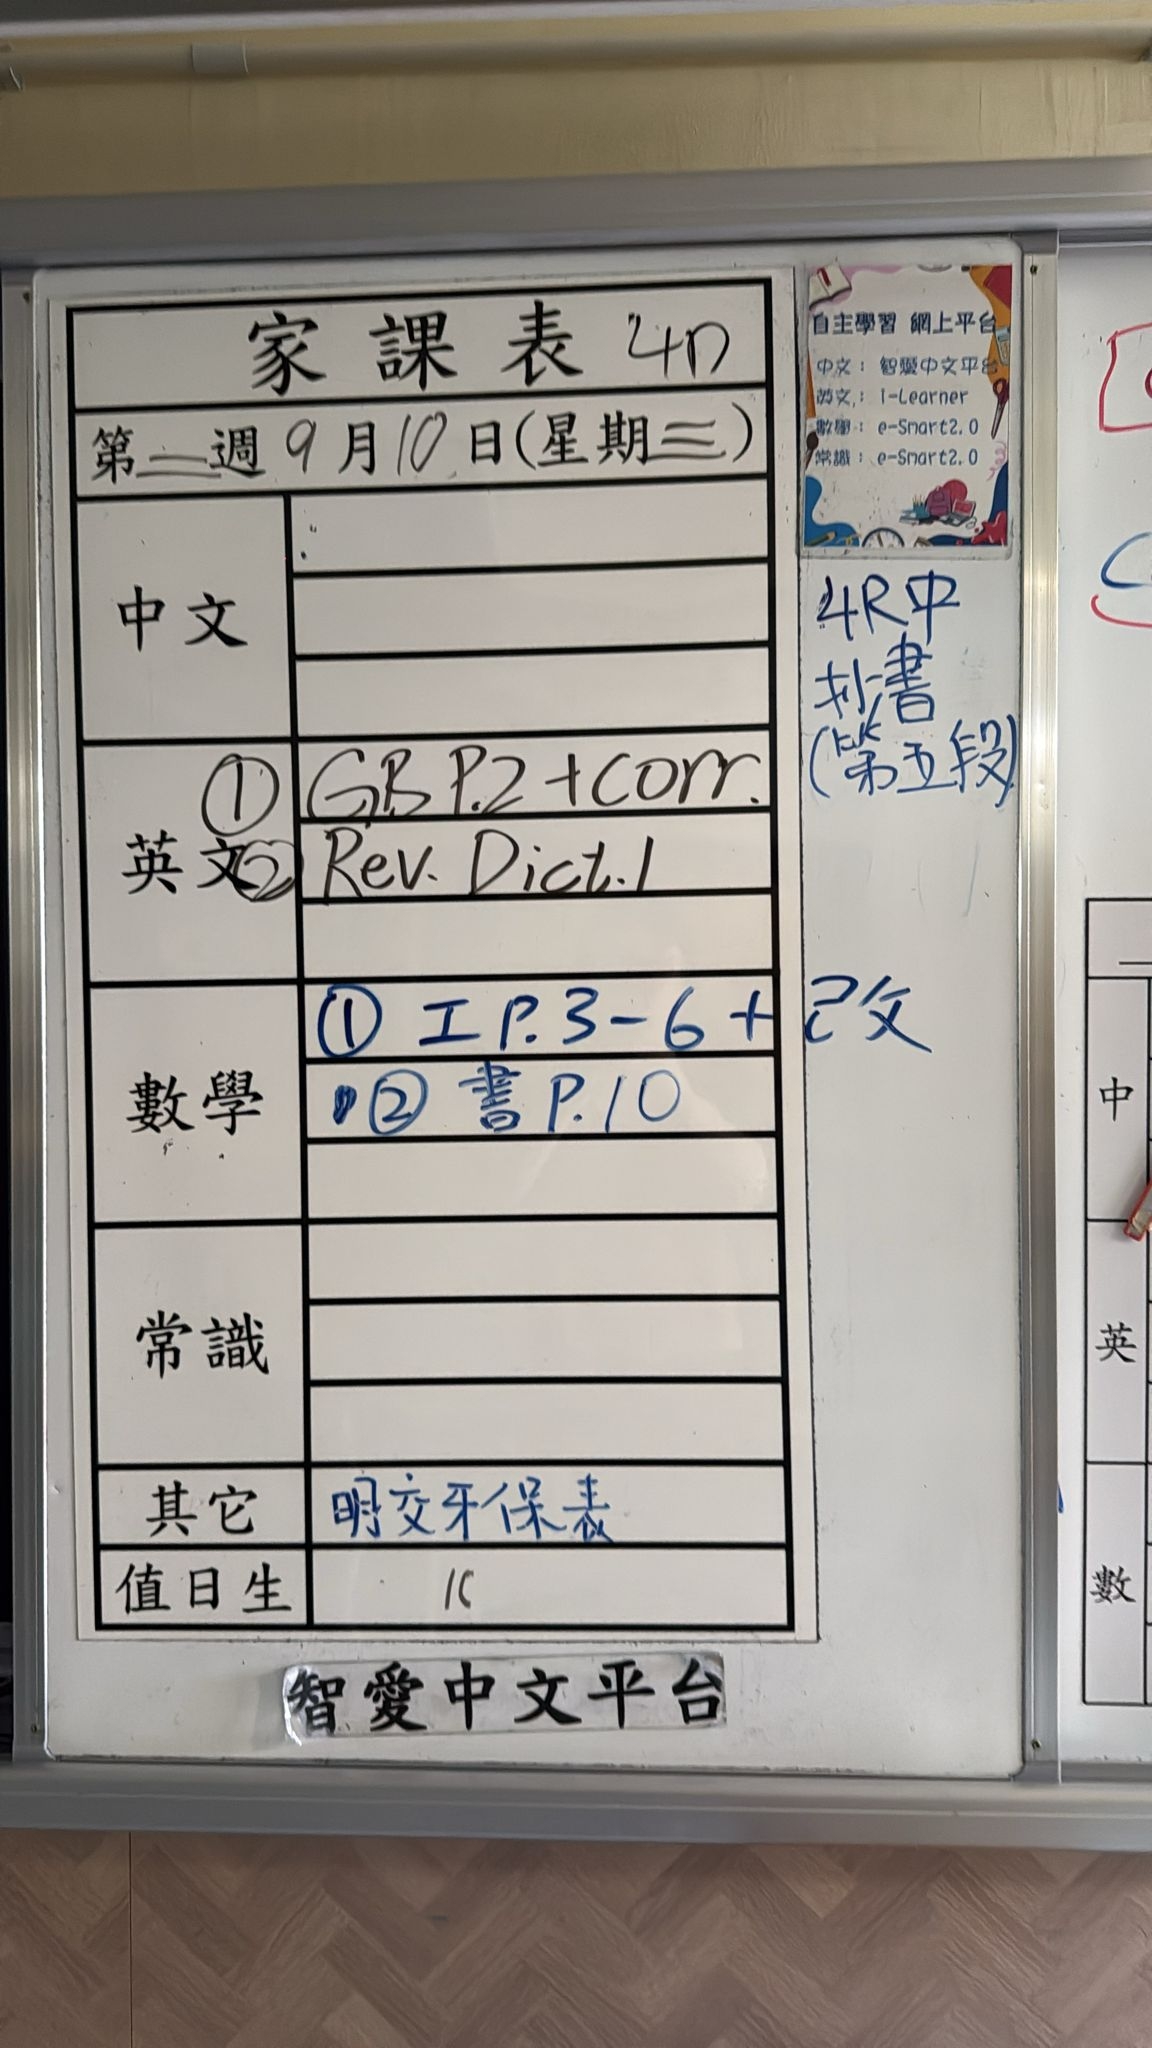 家課表 4D
第二週 9月10日(星期三)
中文
英文
① GB P.2 + corr.
② Rev. Dict.1
數學
① 工 P.3-6 + 改
② 書 P.10
常識
其它
明交牙保表
值日生
智愛中文平台
自主學習 網上平台
中文: 智愛中文平台
英文: i-Learner
數學: e-Smart2.0
常識: e-Smart2.0
4R中
抄書
(第五段)
中
英
數